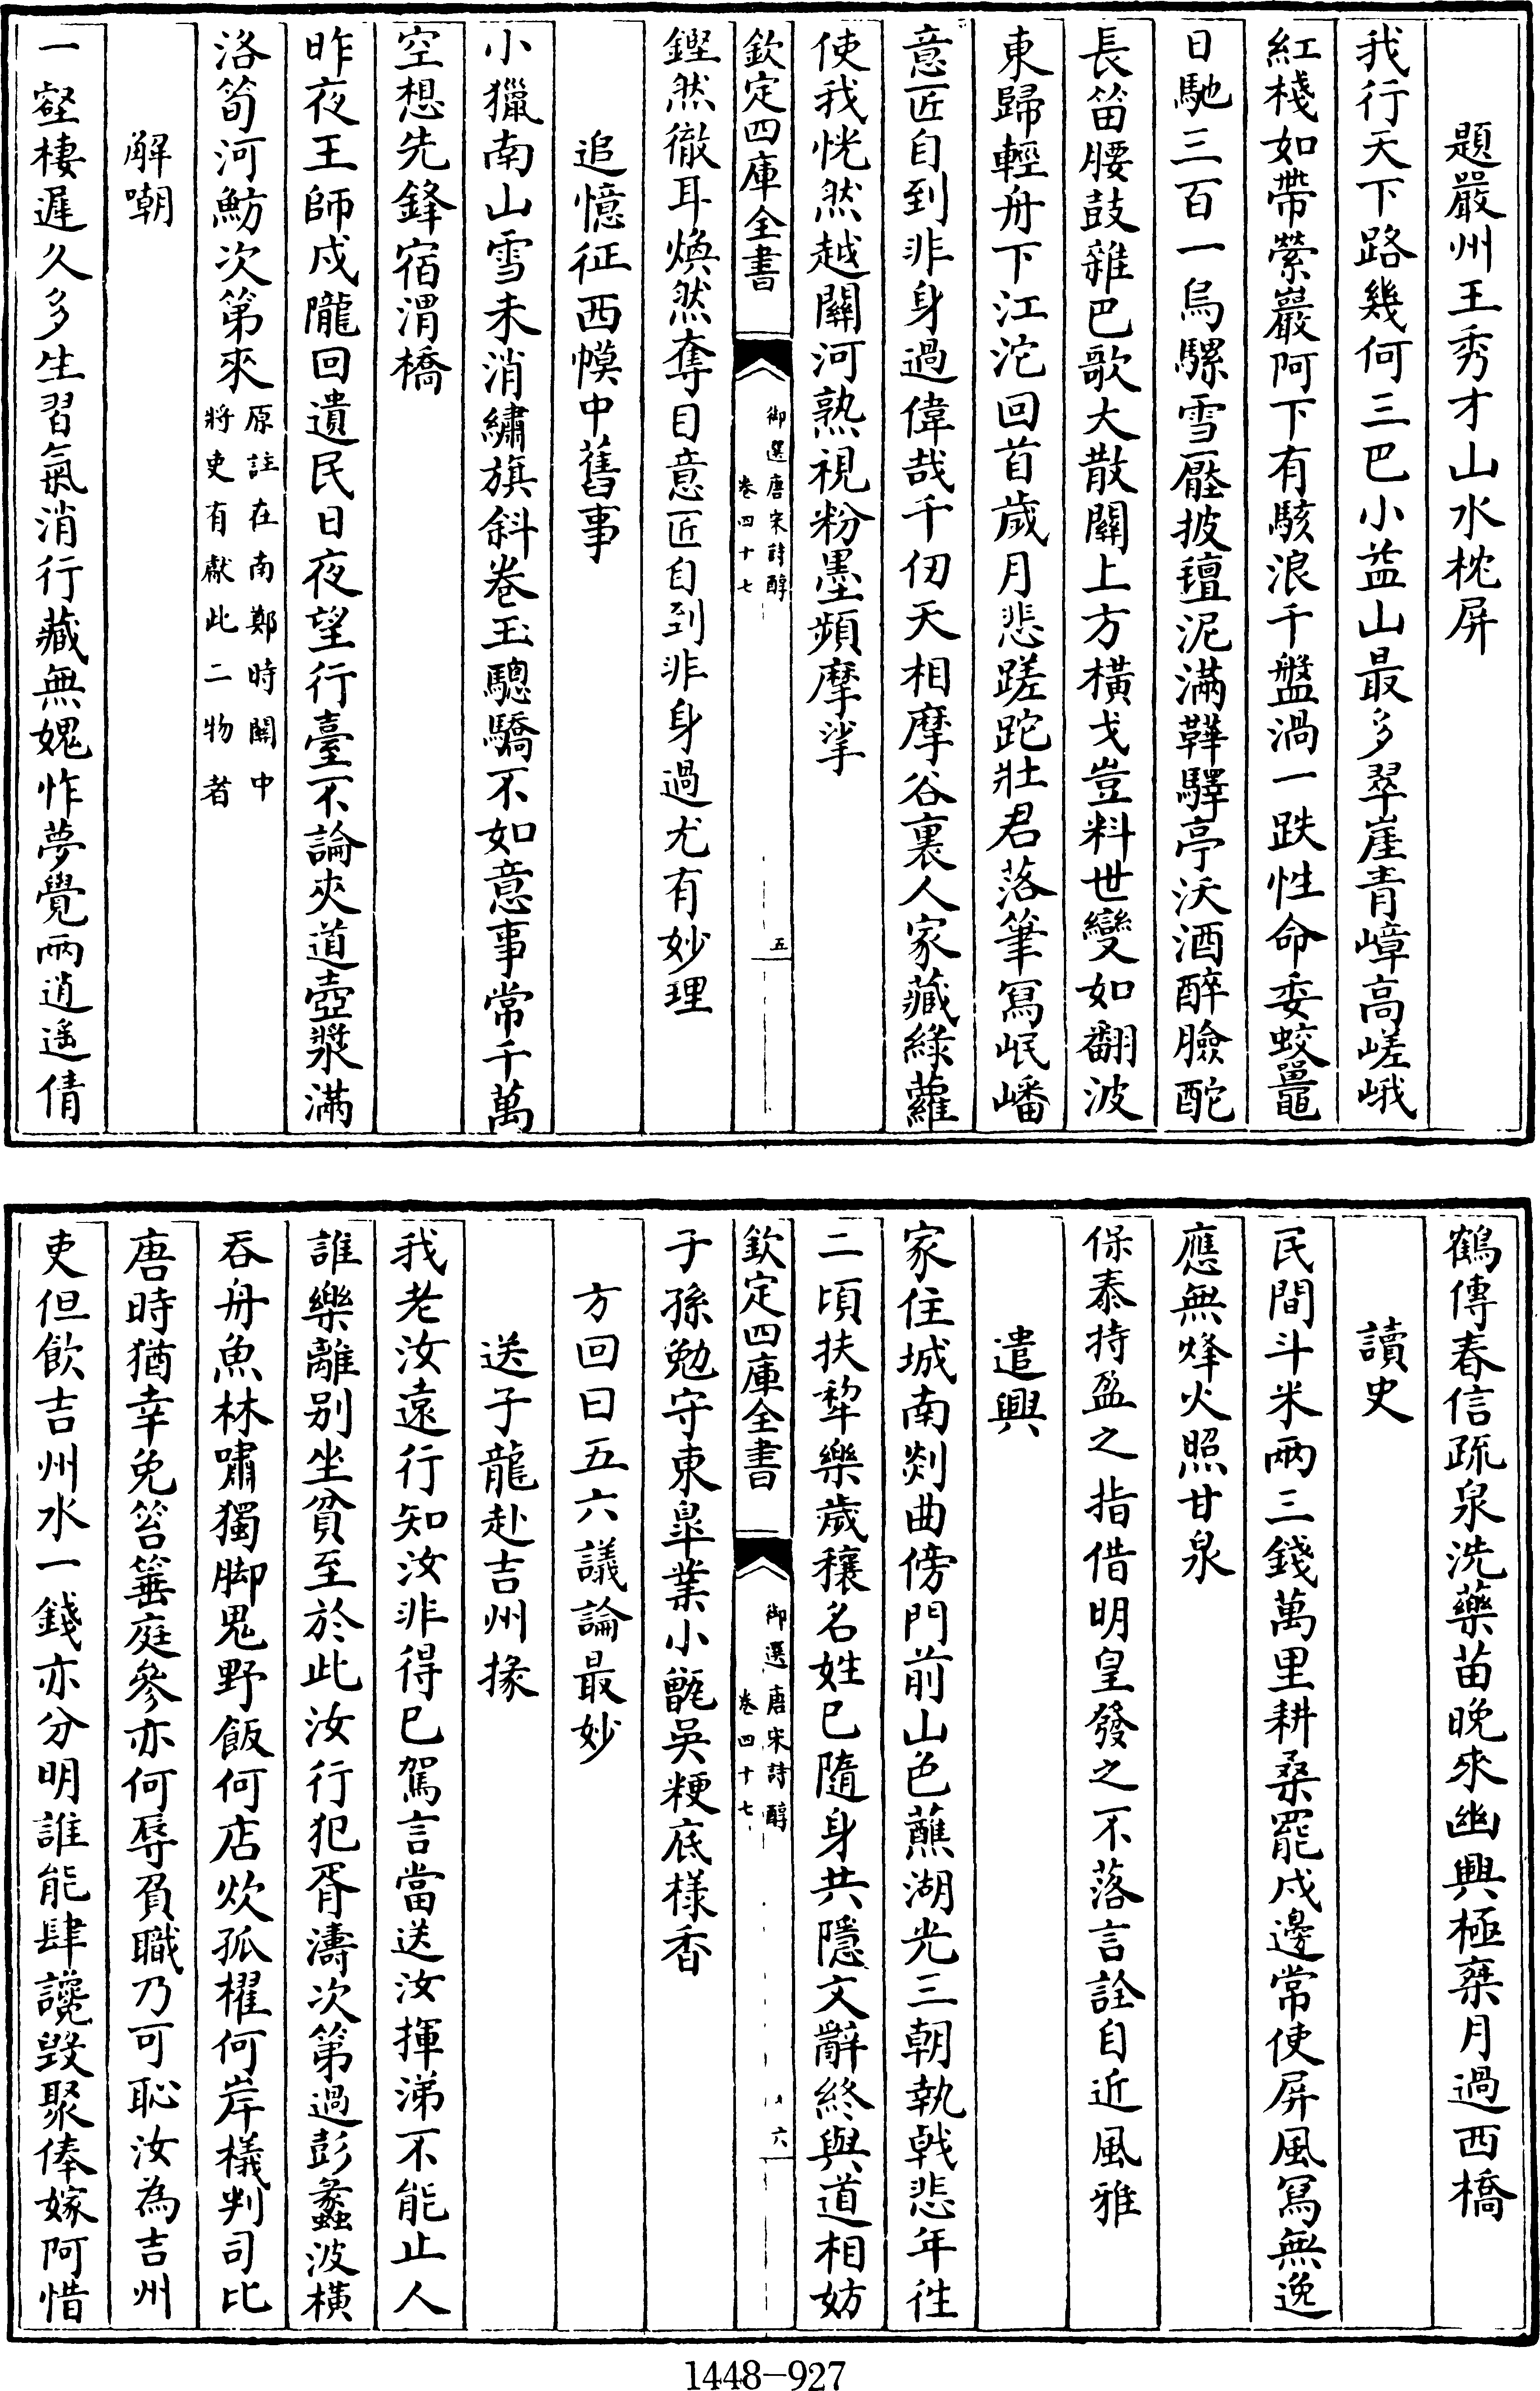 題嚴州王秀才山水枕屏
我行天下路幾何三巴小益山最多翠崖青嶂高嵯峨
紅棧如帶縈巖阿下有駭浪千盤渦一跌性命委蛟鼉
日馳三百一烏騾雪壓披氊泥滿鞾驛亭沃酒醉臉酡
長笛腰鼓雜巴歌大散關上方橫戈豈料世變如翻波
東歸輕舟下江沱回首歲月悲蹉跎壯君落筆寫岷嶓
意匠自到非身過偉哉千仞天相摩谷裏人家藏綠蘿
使我恍然越關河熟視粉墨頻摩挲
欽定四庫全書
御選唐宋詩醇
卷四十七
五
鏗然徹耳煥然奪目意匠自到非身過尤有妙理
追憶征西幙中舊事
小獵南山雪未消繡旗斜卷玉驄驕不如意事常千萬
空想先鋒宿渭橋
昨夜王師戍隴回遺民日夜望行臺不論夾道壺漿滿
洛筍河魴次第來
原註在南鄭時關中
將吏有獻此二物者
解嘲
一壑棲遲久多生習氣消行藏無媿怍夢覺兩逍遙倩
鶴傳春信疏泉洗藥苗晚來幽興極乗月過西橋
讀史
民間斗米兩三錢萬里耕桑罷戍邊常使屏風寫無逸
應無烽火照甘泉
保泰持盈之指借明皇發之不落言詮自近風雅
遣興
家住城南剡曲傍門前山色蘸湖光三朝執戟悲年徃
二頃扶犂樂歲穰名姓已隨身共隱文辭終與道相妨
欽定四庫全書
御選唐宋詩醇
卷四十七
六
子孫勉守東臯業小甑吳粳底樣香
方回曰五六議論最妙
送子龍赴吉州掾
我老汝遠行知汝非得已駕言當送汝揮涕不能止人
誰樂離別坐貧至於此汝行犯胥濤次第過彭蠡波橫
吞舟魚林嘯獨脚鬼野飯何店炊孤櫂何岸檥判司比
唐時猶幸免笞箠庭參亦何辱負職乃可恥汝為吉州
吏但飲吉州水一錢亦分明誰能肆讒毀聚俸嫁阿惜
1448-927